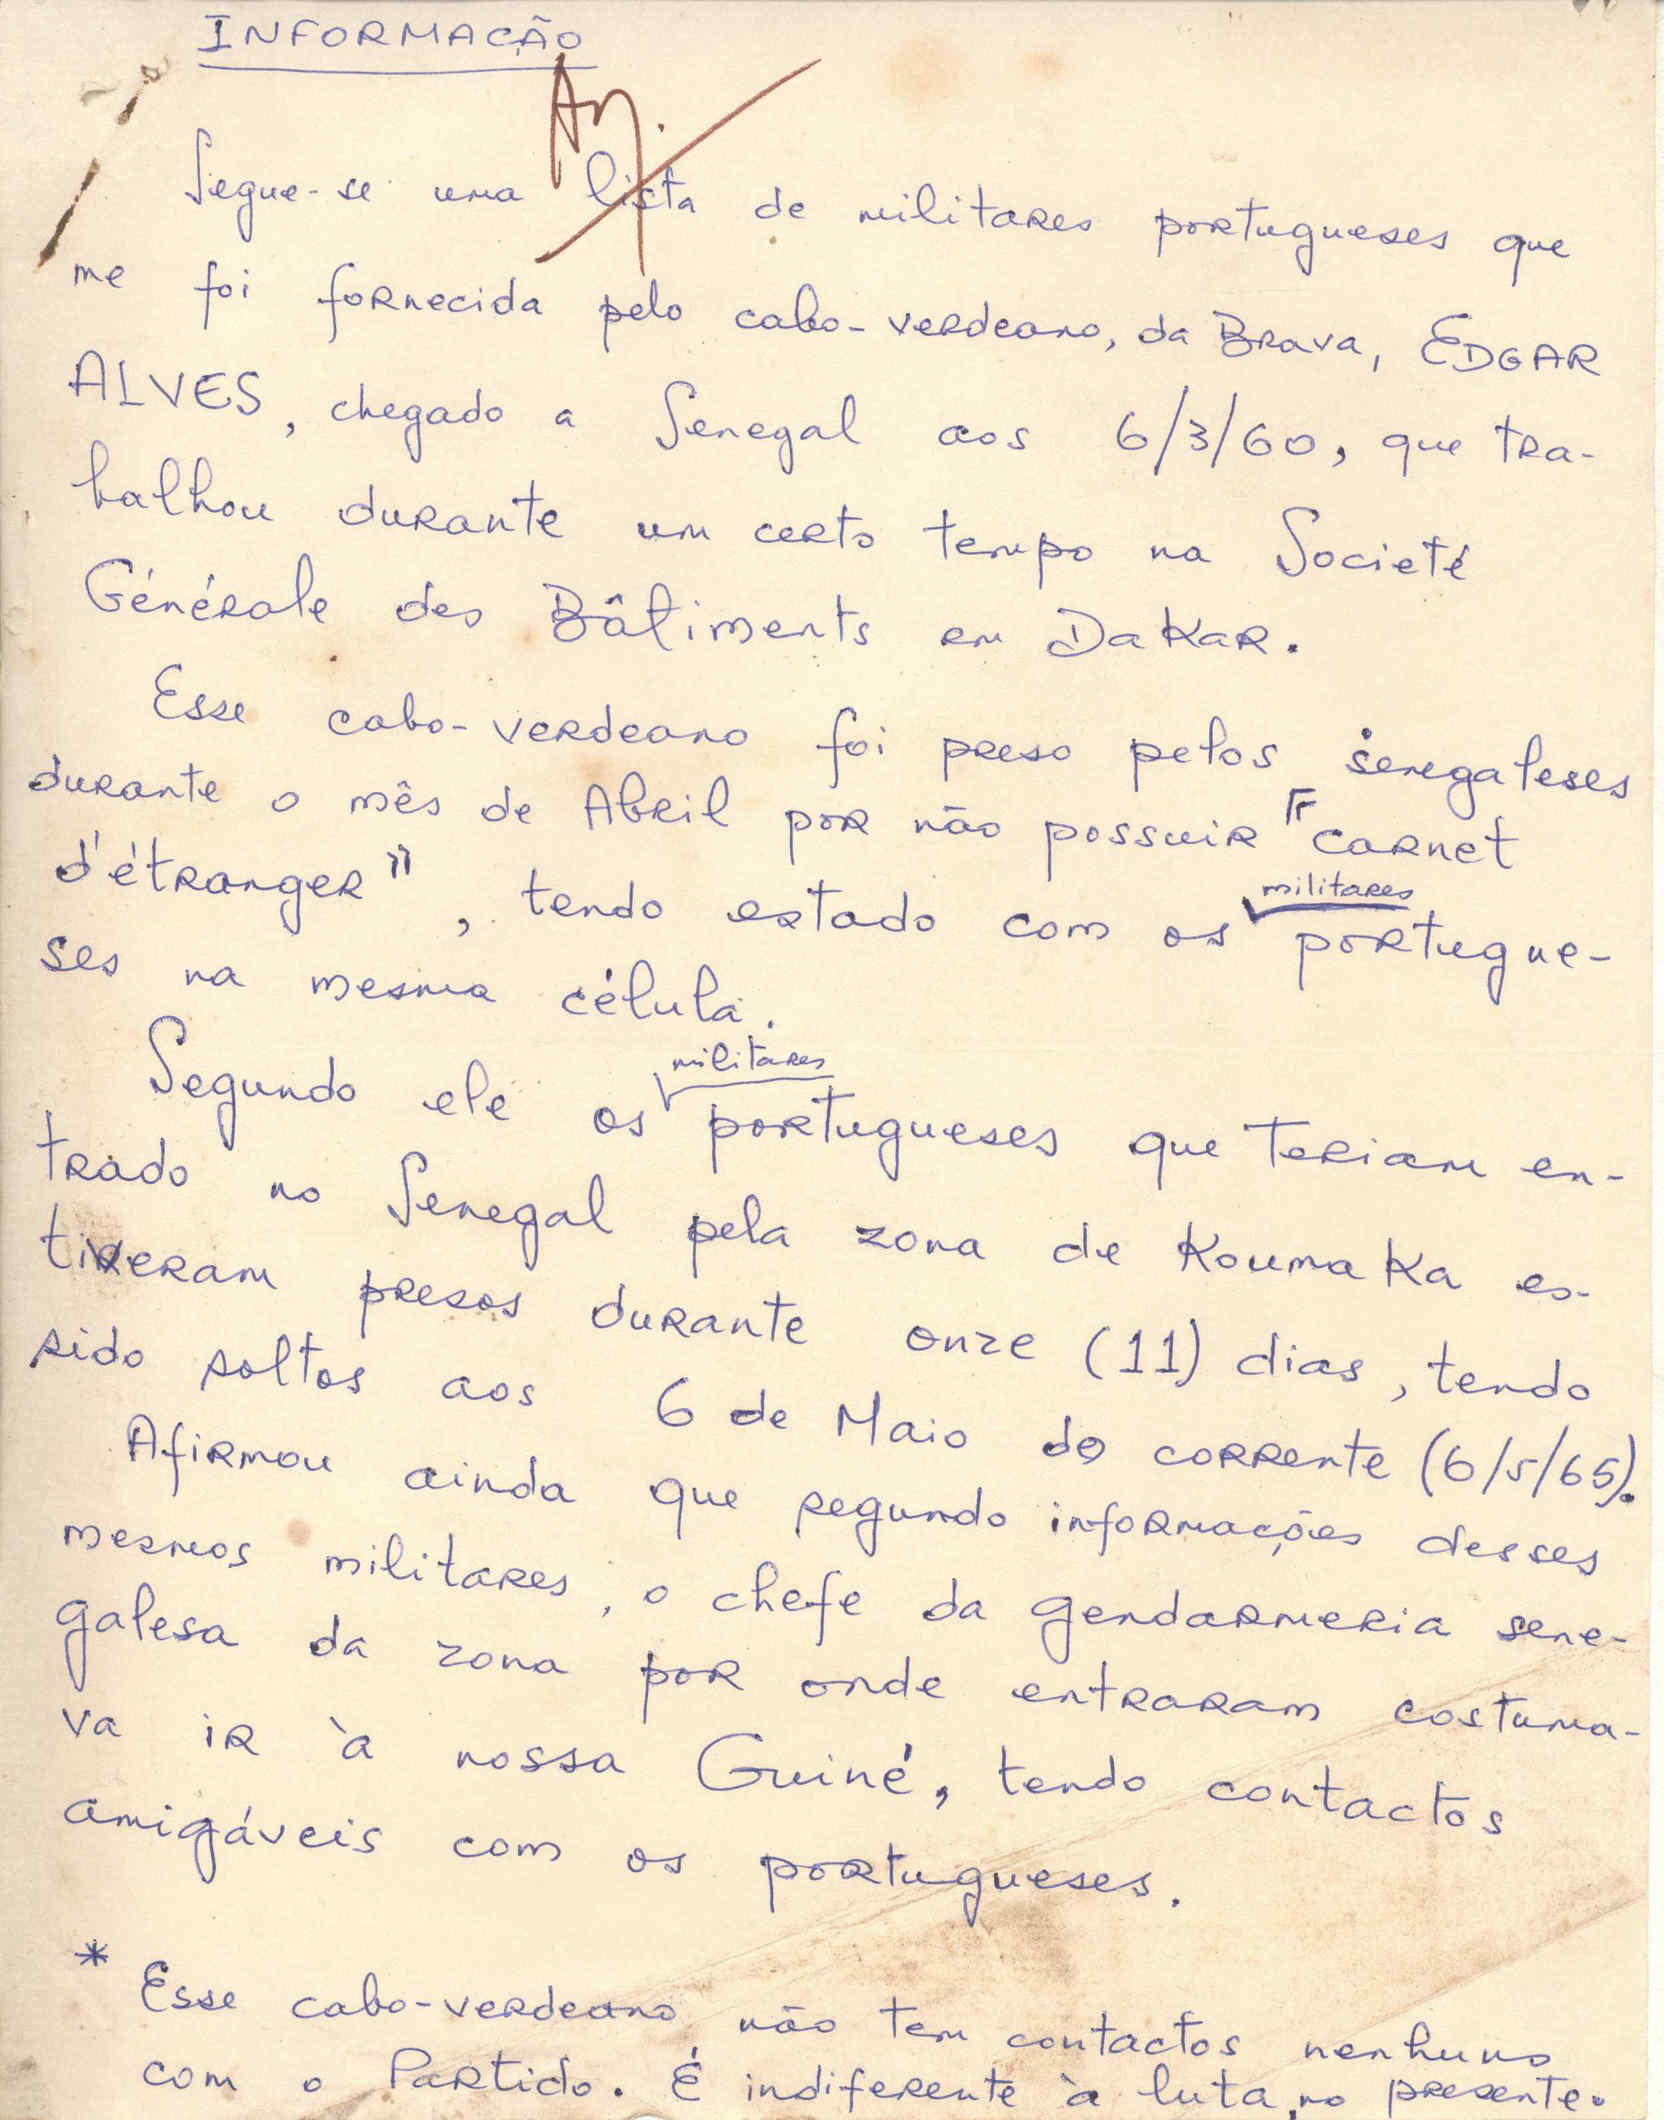 INFORMAÇÃO
Segue-se uma lista de militares portugueses que
me foi fornecida pelo cabo-verdeano, da Brava, EDGAR
ALVES, chegado a Senegal aos 6/3/60, que tra-
balhou durante um certo tempo na Societé
Générale des Bâtiments em Dakar.
Esse cabo-verdeano foi preso pelos senegaleses
durante o mês de Abril por não possuir "carnet
d'étranger", tendo estado com os militares portugue-
ses na mesma célula.
Segundo ele os militares portugueses que teriam en-
trado no Senegal pela zona de Koumaka es-
tiveram presos durante onze (11) dias, tendo
sido soltos aos 6 de Maio do corrente (6/5/65).
Afirmou ainda que segundo informações desses
mesmos militares, o chefe da gendarmeria sene-
galesa da zona por onde entraram costuma-
va ir à nossa Guiné, tendo contactos
amigáveis com os portugueses.
* Esse cabo-verdeano não tem contactos nenhuns
com o Partido. É indiferente à luta, no presente.